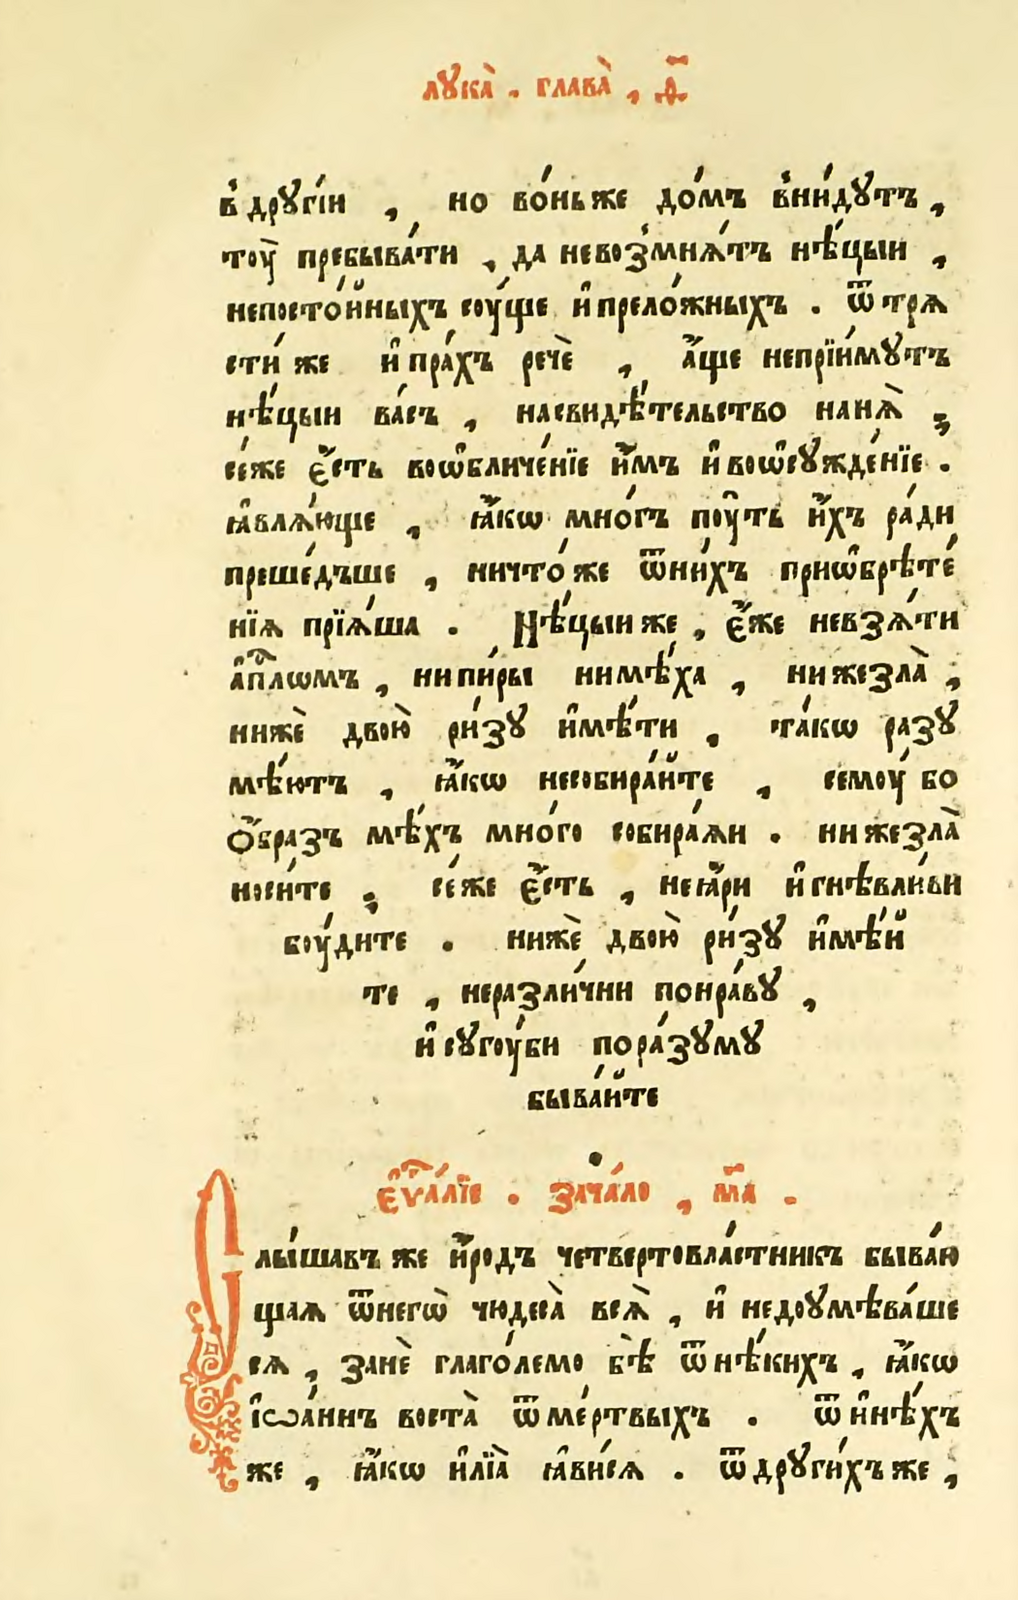 лꙋка̀ . глава̀ , ѳ҃
в̾дрꙋгі́и , но во́ньже до́мъ вни́дꙋтъ ,
тоу̀ пребыва́ти , да невозмнѧ́тъ нѣ́цыи ,
непосто́йныхъ соу́ще и҆прело́жныхъ . ѿтрѧ
сти́ же и҆пра́хъ речѐ , а҆́ще непрїи́мꙋтъ
нѣ́цыи ва́съ , насвидѣ́тельство нанѧ̀ ;
се́же є҆́сть воѡ҆бличе́нїе и҆̀мъ и҆воѡ҆сꙋжде́нїе .
ꙗ҆влѧ́юще , ꙗ҆́кѡ мно́гъ поу҆́ть и҆́хъ ра́ди
преше́дъше , ничто́же ѿни́хъ приѡ҆брѣте́
нїѧ прїѧ́ша . Нѣ́цыиже , є҆́же невзѧ́ти
а҆пⷭ҇лѡмъ , нипи́ры нимѣ́ха , нижезла̀ ;
нижѐ двою̀ ри́зꙋ и҆мѣ́ти , та́кѡ разꙋ
мѣ́ютъ , ꙗ҆́кѡ несобира́йте , семоу́ бо
ѻ҆́бразъ мѣ́хъ мно́го собира́ѧи . нижезла̀
носи́те ; се́же є҆́сть , неꙗ҆́ри и҆гнѣвли́ви
боу́дите . нижѐ двою̀ ри́зꙋ и҆мѣ́й
те , неразли́чни понра́вꙋ ,
и҆сꙋгоу́би пора́зꙋмꙋ
быва́йте
є҆ѵⷢ҇а́лїе . зача́ло , м҃а .
Слы́шавъ же и҆́родъ четвертовла́стникъ быва́ю
щаѧ ѿнегѡ̀ чюдеса̀ всѧ̀ , и҆ недоумѣва́ше
сѧ , занѐ глаго́лемо бѣ̀ ѿнѣ́кихъ , ꙗ҆́кѡ
і҆ѡа́ннъ воста̀ ѿме́ртвыхъ . ѿи҆нѣ́хъ
же , ꙗ҆́кѡ и҆лїа̀ ꙗ҆ви́сѧ . ѿдрꙋги́хъже ,